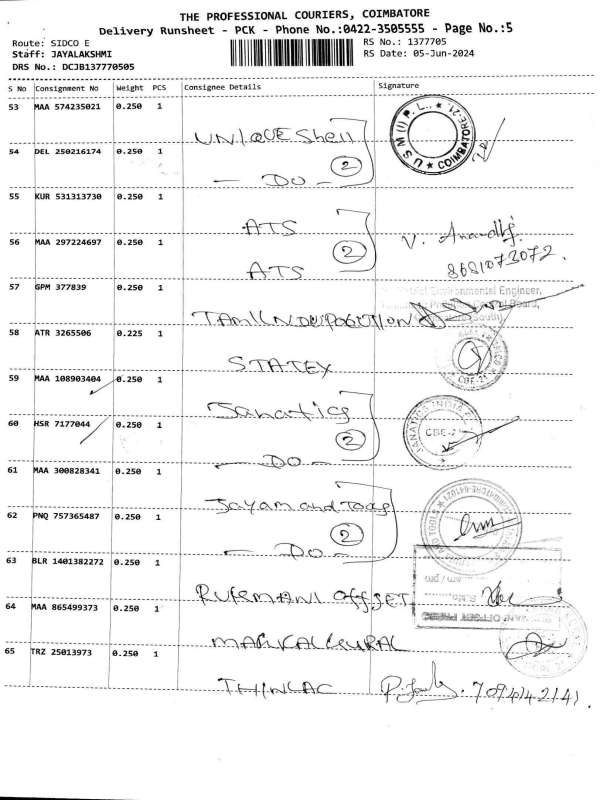 THE PROFESSIONAL COURIERS, COIMBATORE
Delivery Runsheet - PCK - Phone No.:0422-3505555 - Page No.:5
Route: SIDCO E
RS No.: 1377705
Staff: JAYALAKSHMI
RS Date: 05-Jun-2024
DRS No.: DCJB137770505
S No Consignment No Weight PCS Consignee Details Signature
53 MAA 574235021 0.250 1
UNIQUE Shell
USM (I) P. L., ★ COIMBATORE-21. ★
54 DEL 250216174 0.250 1
- DO - 2
55 KUR 531313730 0.250 1
ATS
56 MAA 297224697 0.250 1
ATS 2
V. Anandhi
8681073072.
57 GPM 377839 0.250 1
Environmental Engineer,
Board,
58 ATR 3265506 0.225 1
STATEX
CBE-21
59 MAA 108903404 0.250 1
Janatics
JANATICS INDIA
CBE-21
60 HSR 7177044 0.250 1
- DO - 2
61 MAA 300828341 0.250 1
Jayam and
62 PNQ 757365487 0.250 1
- DO - 2
COIMBATORE-641021
63 BLR 1401382272 0.250 1
OFFSET
am / pm
OFFSET PRESS
64 MAA 865499373 0.250 1
65 TRZ 25013973 0.250 1
THINLAC